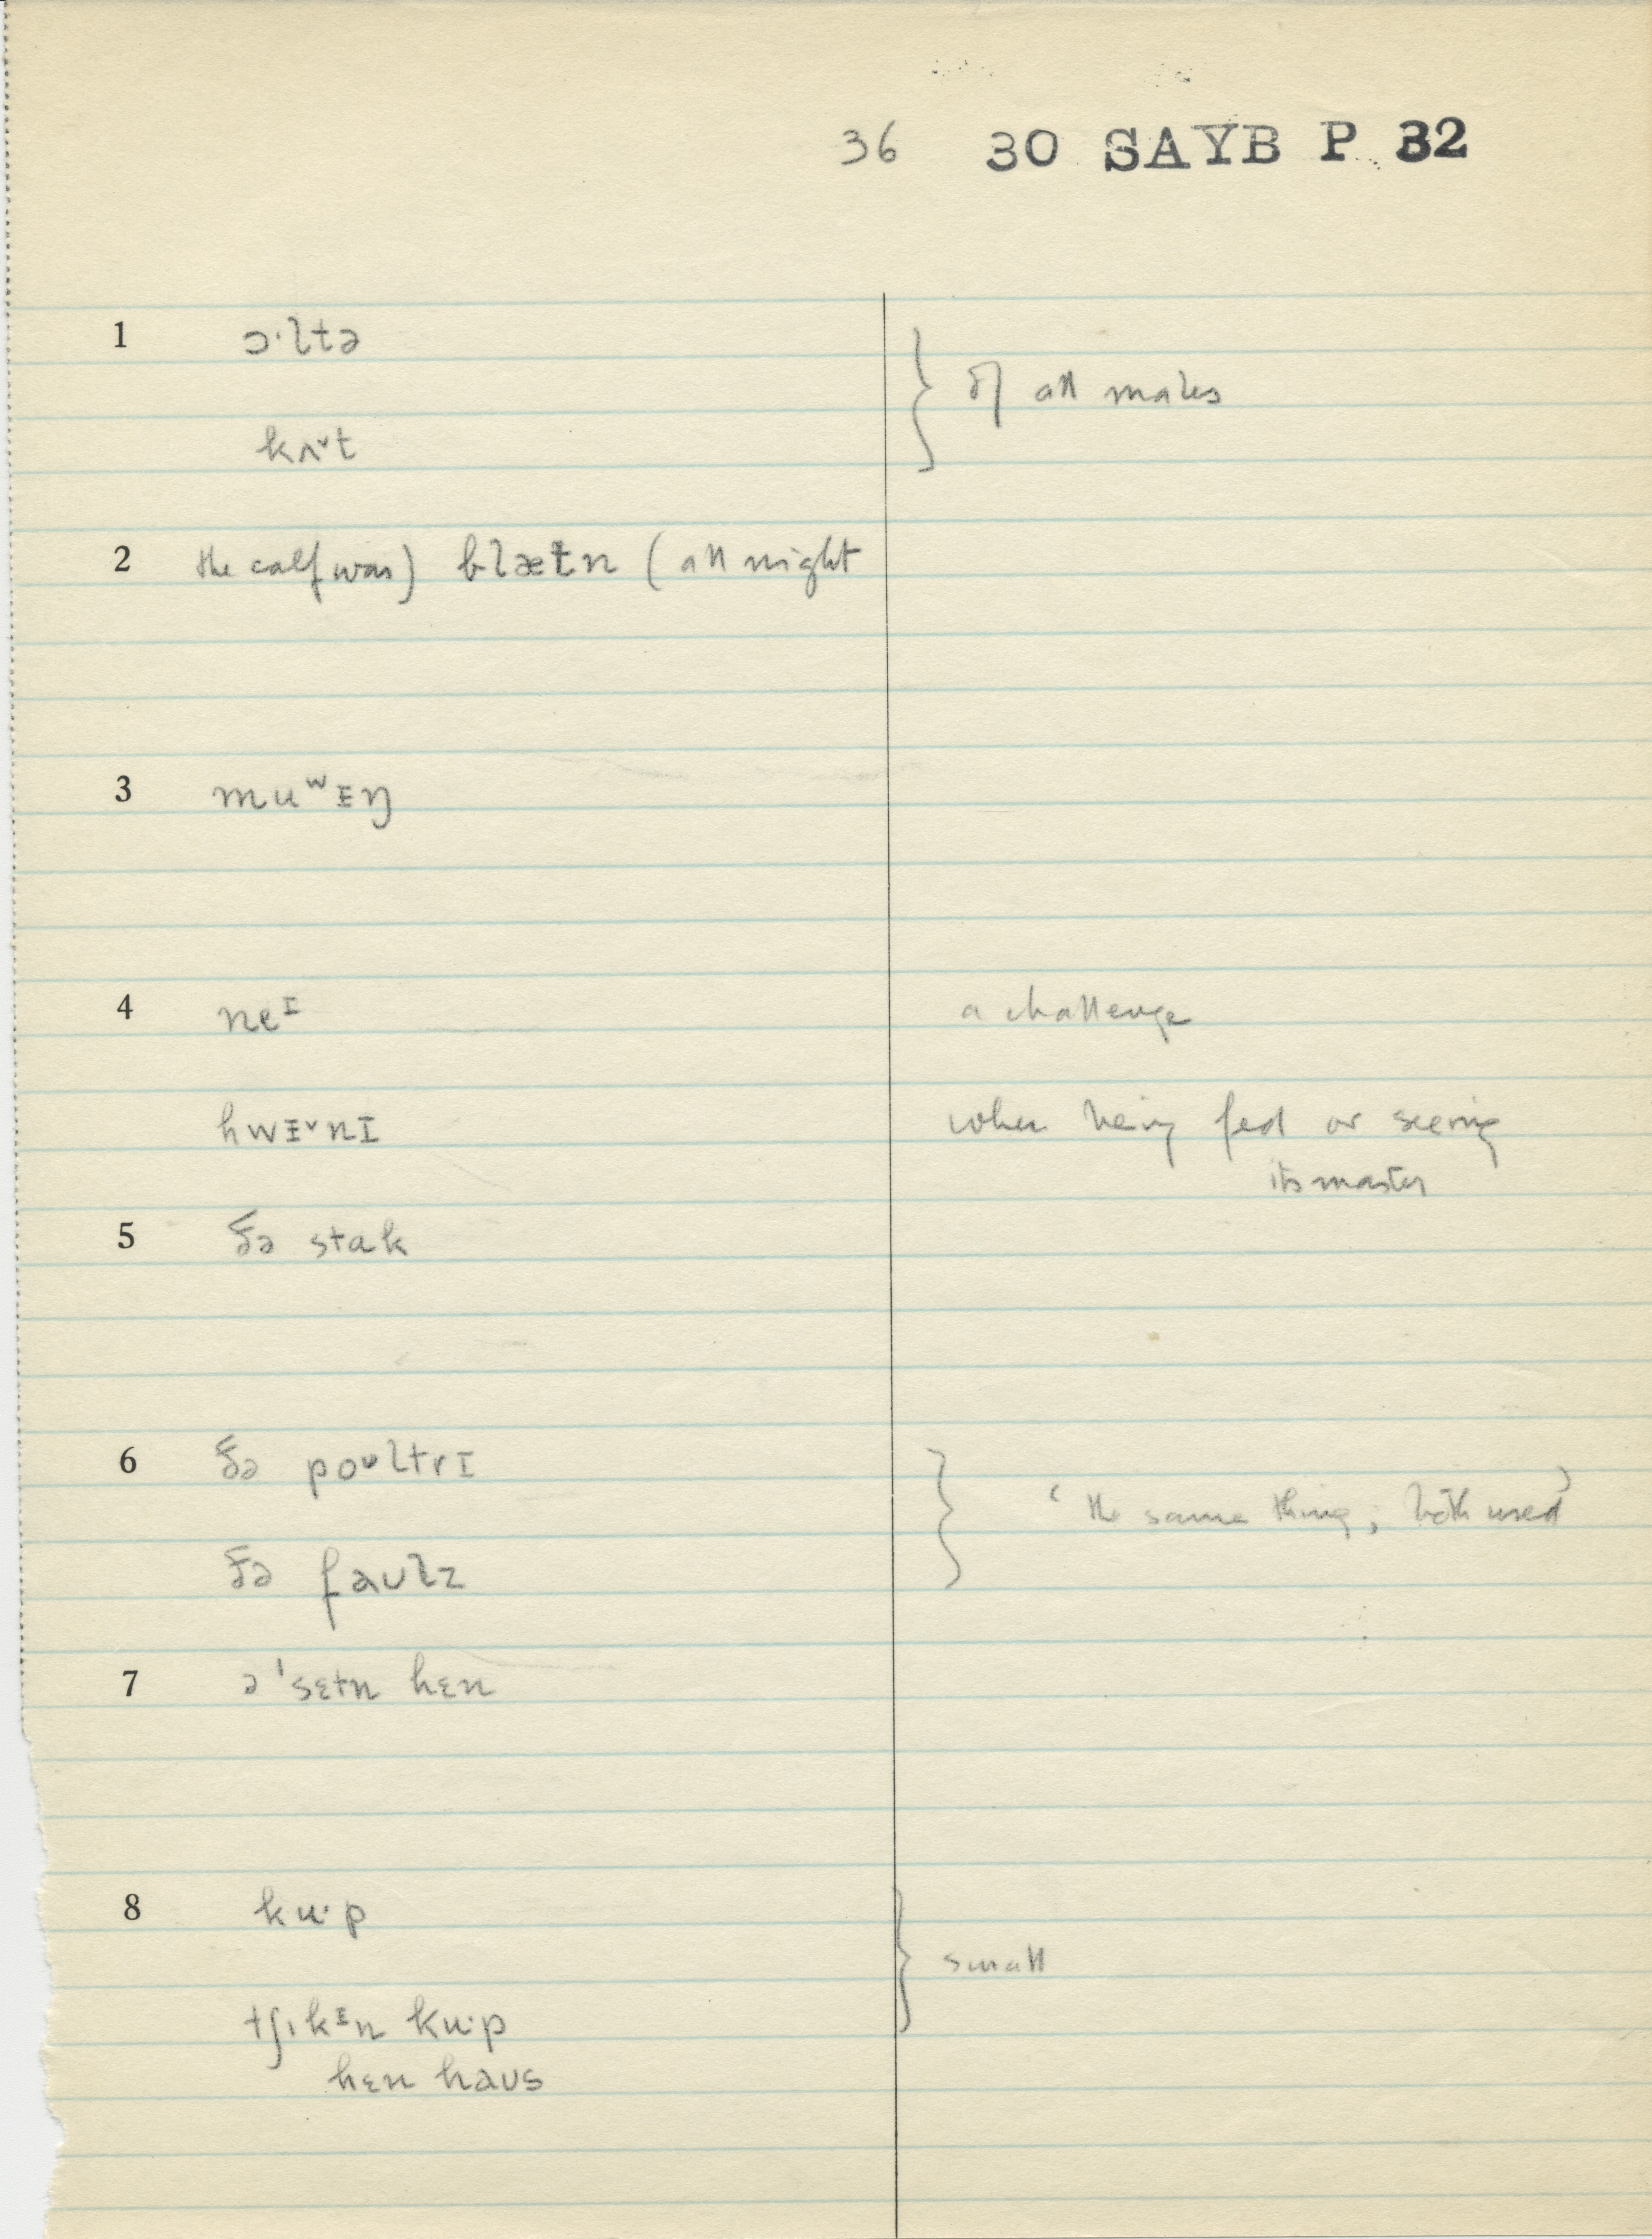 36 30 SAYB P 32
1 ɔ·ltə
} of all males
kʌ˅t
2 the calf was) blæt̬n (all night
3 muʷɪŋ
4 neᴵ a challenge
hwɪ˅nɪ when being fed or seeing
its master
5 ðə stak
6 ðə poᶷltrɪ
} ‘the same thing; both used’
ðə faʊlz
7 ə ˈsɛtn hɛn
8 ku·p
} small
tʃɪkᵻn ku·p
hɛn haʊs